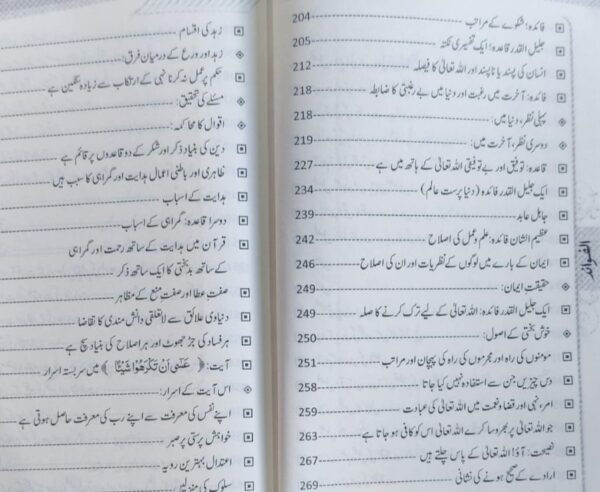 فائدہ: شکوے کے مراتب 204
جلیل القدر قاعدہ: ایک تفسیری نکتہ 205
انسان کی پسند یا ناپسند اور اللہ تعالیٰ کا فیصلہ 212
فائدہ: آخرت میں رغبت اور دنیا میں بے رغبتی کا ضابطہ 218
پہلی نظر، دنیا میں: 218
دوسری نظر، آخرت میں: 219
قاعدہ: توفیق اور بے توفیقی اللہ تعالیٰ کے ہاتھ میں ہے 227
ایک جلیل القدر فائدہ (دنیا پرست عالم) 234
جاہل عابد 239
عظیم الشان فائدہ: علم و عمل کی اصلاح 242
ایمان کے بارے میں لوگوں کے نظریات اور ان کی اصلاح 246
حقیقتِ ایمان: 249
ایک جلیل القدر فائدہ: اللہ تعالیٰ کے لیے ترک کرنے کا صلہ 249
خوش بختی کے اصول: 250
مومنوں کی راہ اور مجرموں کی راہ کی پہچان اور مراتب 251
دس چیزیں جن سے استفادہ نہیں کیا جاتا 258
امر، نہی اور قضا و نعمت میں اللہ تعالیٰ کی عبادت 259
جو اللہ تعالیٰ پر بھروسا کرے اللہ تعالیٰ اس کو کافی ہو جاتا ہے 263
نصیحت: آؤ! اللہ تعالیٰ کے پاس چلتے ہیں 267
ارادے کے صحیح ہونے کی نشانی 269
الفوائد
زہد کی اقسام
زہد اور ورع کے درمیان فرق:
حکم پر عمل نہ کرنا نہی کے ارتکاب سے زیادہ سنگین ہے
مسئلے کی تحقیق:
اقوال کا محاکمہ:
دین کی بنیاد ذکر اور شکر کے دو قاعدوں پر قائم ہے
ظاہری اور باطنی اعمال ہدایت اور گمراہی کا سبب ہیں
ہدایت کے اسباب
دوسرا قاعدہ: گمراہی کے اسباب
قرآن میں ہدایت کے ساتھ رحمت اور گمراہی
کے ساتھ بدبختی کا ایک ساتھ ذکر
صفتِ عطا اور صفتِ منع کے مظاہر
دنیاوی علائق سے لاتعلقی دانش مندی کا تقاضا
ہر فساد کی جڑ جھوٹ اور ہر اصلاح کی بنیاد سچ ہے
آیت: ﴿عَسٰى اَنْ تَكْرَهُوْا شَيْئًا﴾ میں سربستہ اسرار
اس آیت کے اسرار:
اپنے نفس کی معرفت سے اپنے رب کی معرفت حاصل ہوتی ہے
خواہش پرستی پر صبر
اعتدال بہترین رویہ
سلوک کی منزلیں